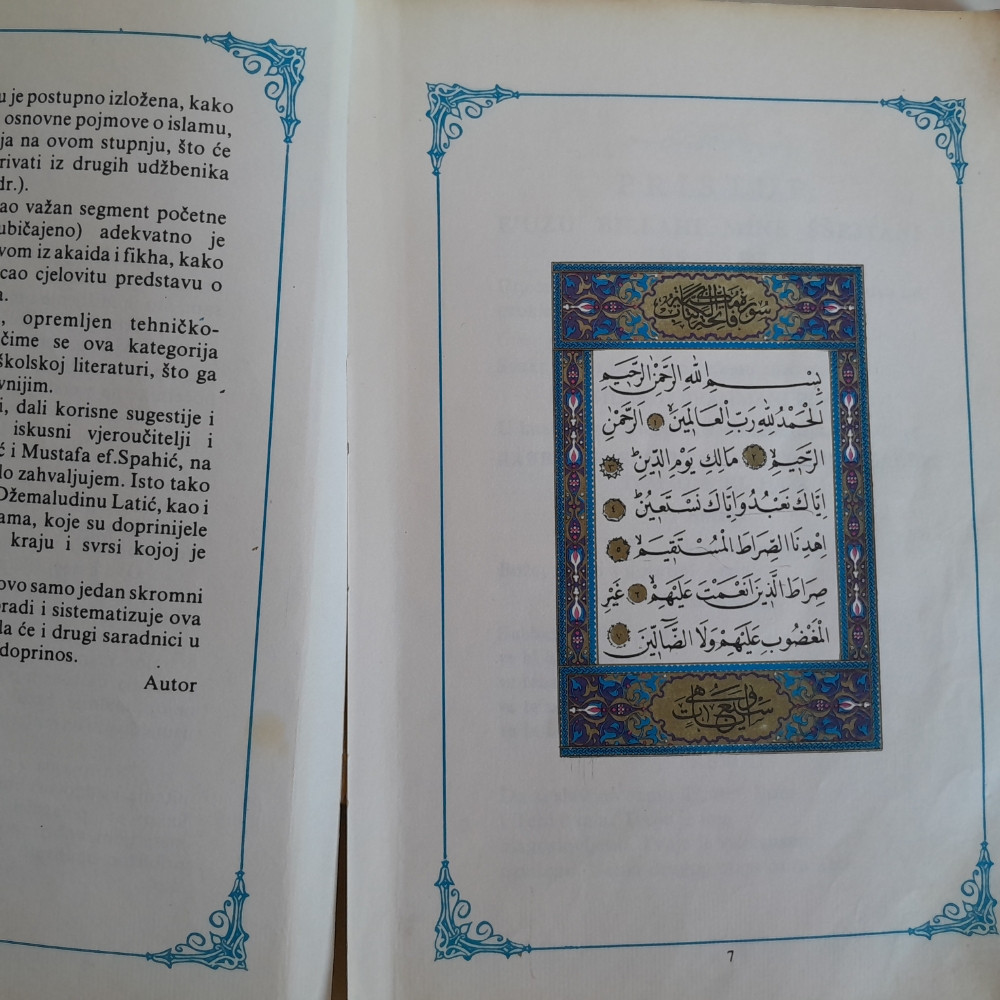 u je postupno izložena, kako
osnovne pojmove o islamu,
ja na ovom stupnju, što će
rivati iz drugih udžbenika
dr.).
ao važan segment početne
ubičajeno) adekvatno je
vom iz akaida i fikha, kako
cao cjelovitu predstavu o
a.
, opremljen tehničko-
čime se ova kategorija
školskoj literaturi, što ga
vnijim.
i, dali korisne sugestije i
iskusni vjeroučitelji i
ć i Mustafa ef.Spahić, na
lo zahvaljujem. Isto tako
Džemaludinu Latić, kao i
ama, koje su doprinijele
kraju i svrsi kojoj je
ovo samo jedan skromni
radi i sistematizuje ova
la će i drugi saradnici u
doprinos.
Autor
سورة فاتحة الكتاب
بِسْمِ اللهِ الرَّحْمٰنِ الرَّحِيمِ
اَلْحَمْدُ لِلّٰهِ رَبِّ الْعَالَمِينَ ١ اَلرَّحْمٰنِ
الرَّحِيمِ ٢ مَالِكِ يَوْمِ الدِّينِ ٣
اِيَّاكَ نَعْبُدُ وَاِيَّاكَ نَسْتَعِينُ ٤
اِهْدِنَا الصِّرَاطَ الْمُسْتَقِيمَ ٥
صِرَاطَ الَّذِينَ اَنْعَمْتَ عَلَيْهِمْ ٦ غَيْرِ
الْمَغْضُوبِ عَلَيْهِمْ وَلَا الضَّالِّينَ ٧
7